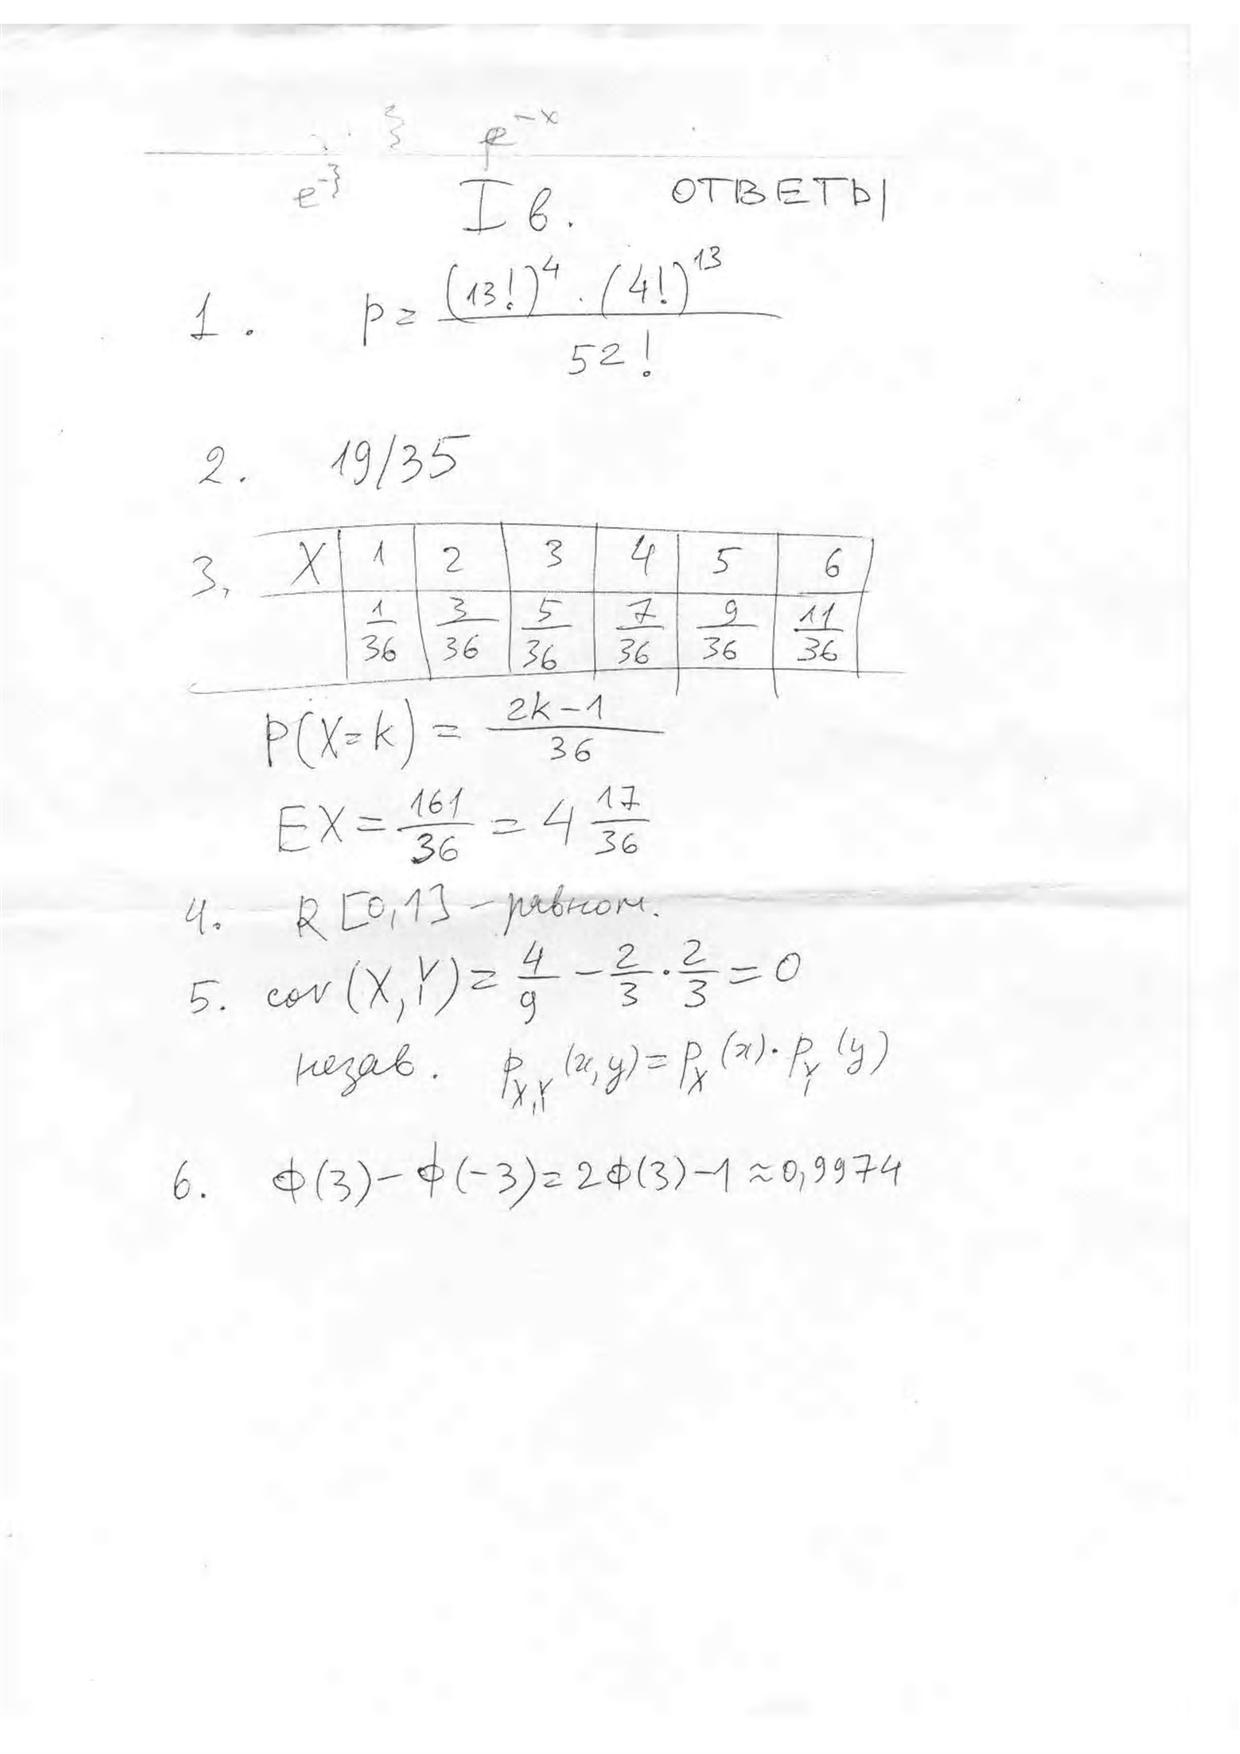 e^{-x}
e^{-ξ}
I в. ОТВЕТЫ
1. p = \frac{(13!)^4 \cdot (4!)^{13}}{52!}
2. 19/35
3. X | 1 | 2 | 3 | 4 | 5 | 6
\frac{1}{36} | \frac{3}{36} | \frac{5}{36} | \frac{7}{36} | \frac{9}{36} | \frac{11}{36}
P(X=k) = \frac{2k-1}{36}
EX = \frac{161}{36} = 4\frac{17}{36}
4. R[0,1] – равном.
5. cov(X,Y) = \frac{4}{9} - \frac{2}{3} \cdot \frac{2}{3} = 0
незав. p_{X,Y}(x,y) = p_X(x) \cdot p_Y(y)
6. Φ(3) - Φ(-3) = 2Φ(3) - 1 ≈ 0,9974